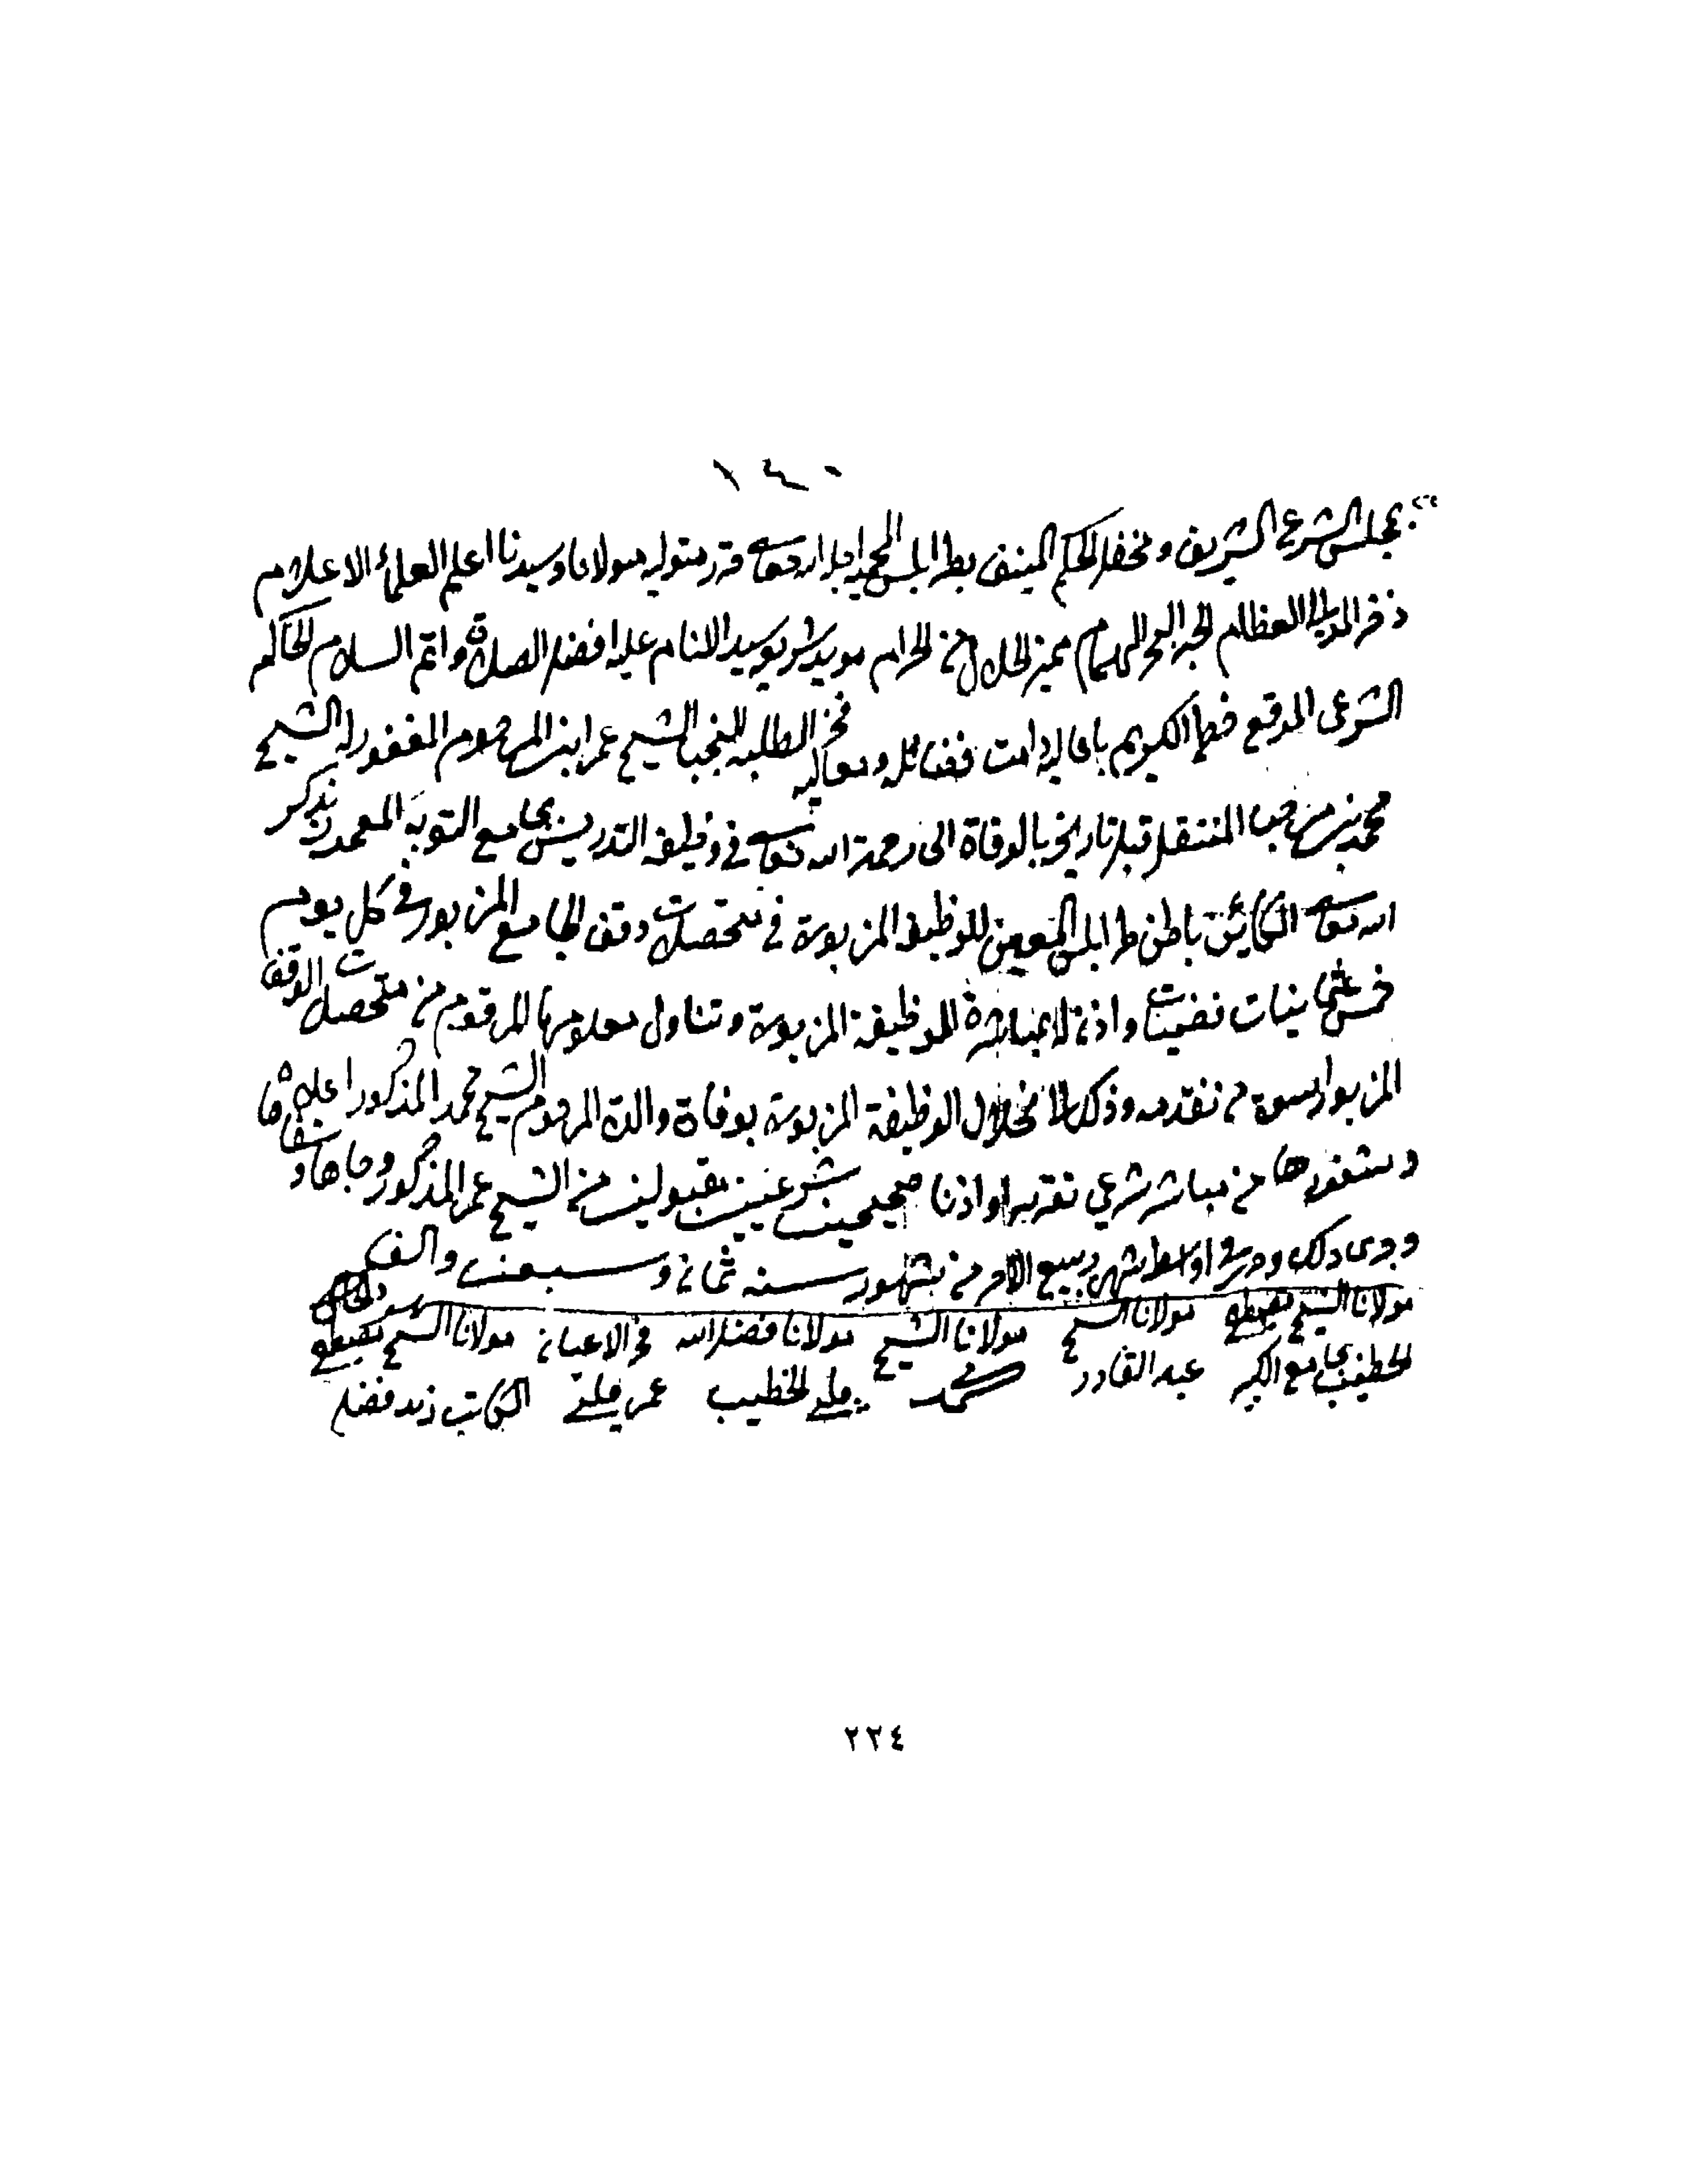 ١٤٠
بمجلس الشرع الشريف ومحفل الحكم المنيف بطرابلس المحمية اجله الله تعالى قرر متوليه مولانا وسيدنا اعلم العلماء الاعلام
ذخر الموالي العظام الحبر البحر الهمام مميز الحلال من الحرام مويد شريعة سيد الانام عليه افضل الصلاة واتم السلام الحاكم
الشرعي الموقع خطه الكريم باعاليه دامت فضائله ومعاليه فخر الطلبة النجبا الشيخ عمر ابن المرحوم المغفور له الشيخ
محمد بن مرحبا المنتقل قبل تاريخه بالوفاة الى رحمة الله تعالى في وظيفة التدريس بجامع التوبة المعمور بذكر
الله تعالى الكاين باطن طرابلس المعين للوظيفة المزبورة في متحصلات وقف الجامع المزبور في كل يوم
خمس عثمانيات فضيات واذن له بمباشرة الوظيفة المزبورة وتناول معلومها المرقوم من متحصلات الوقف
المزبور اسوة من تقدمه وذلك لانحلال الوظيفة المزبورة بوفاة والده المرحوم الشيخ محمد المذكور اعلاه
وشغورها من مباشر شرعي تقريرا واذنا صحيحين شرعيين مقبولين من الشيخ عمر المذكور وجاها وشفاها
وجرى ذلك وحرر في اواسط شهر ربيع الاخر من شهور سنة ثمان وسبعين والف
مولانا الشيخ مصطفى مولانا الشيخ مولانا الشيخ مولانا فضل الله فخر الاعيان مولانا الشيخ مصطفى
الخطيب بجامع الكبير عبد القادر محمد چلبي الخطيب عمر چلبي الكاتب زيد فضله
٢٣٤